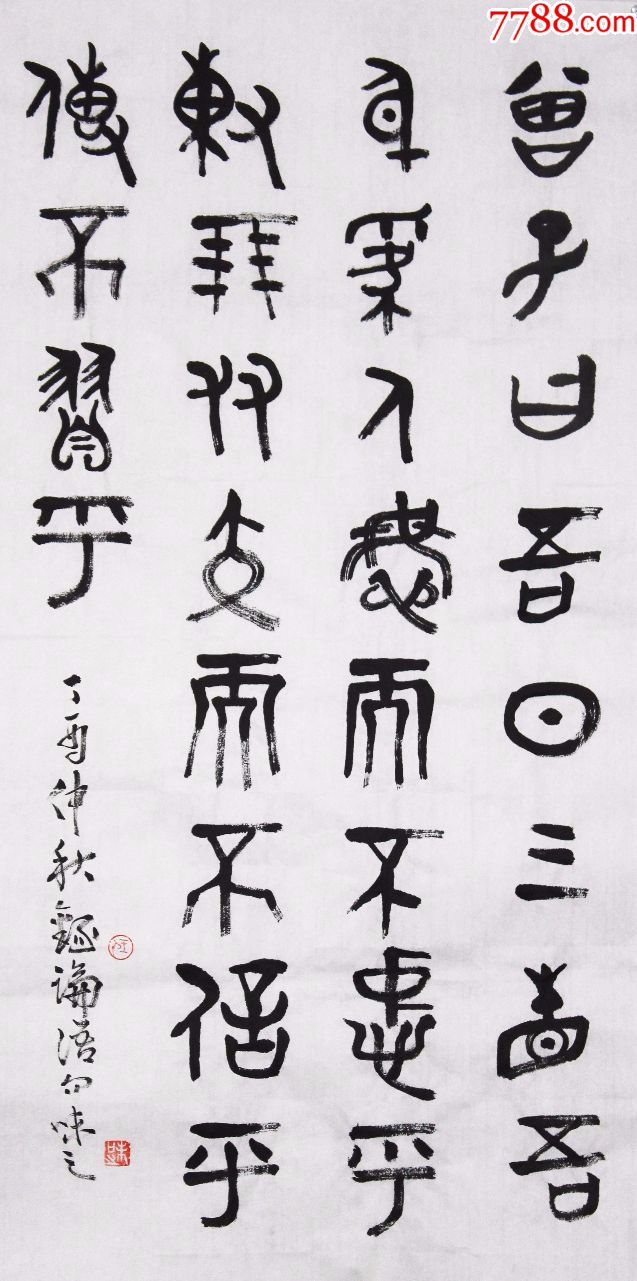 7788.com
曾子曰吾日三省吾
身為人謀而不忠乎
與朋友交而不信乎
傳不習乎
丁酉仲秋錄論語句味之